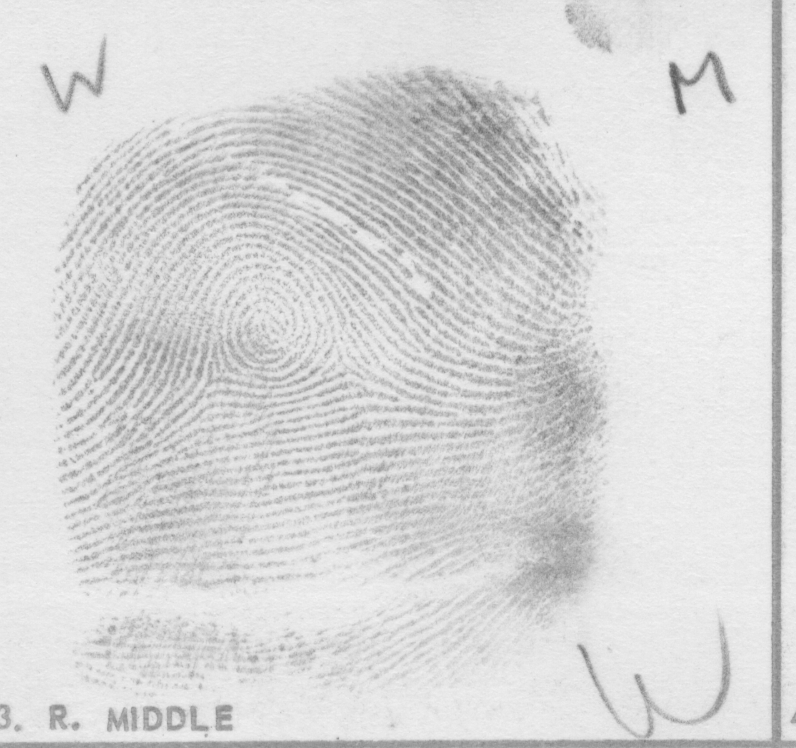 W
M
W
3. R. MIDDLE